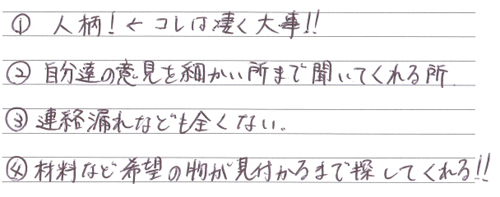 ① 人柄！← コレは凄く大事!!
② 自分達の意見を細かい所まで聞いてくれる所.
③ 連絡漏れなども全くない。
④ 材料など希望の物が見付かるまで探してくれる!!